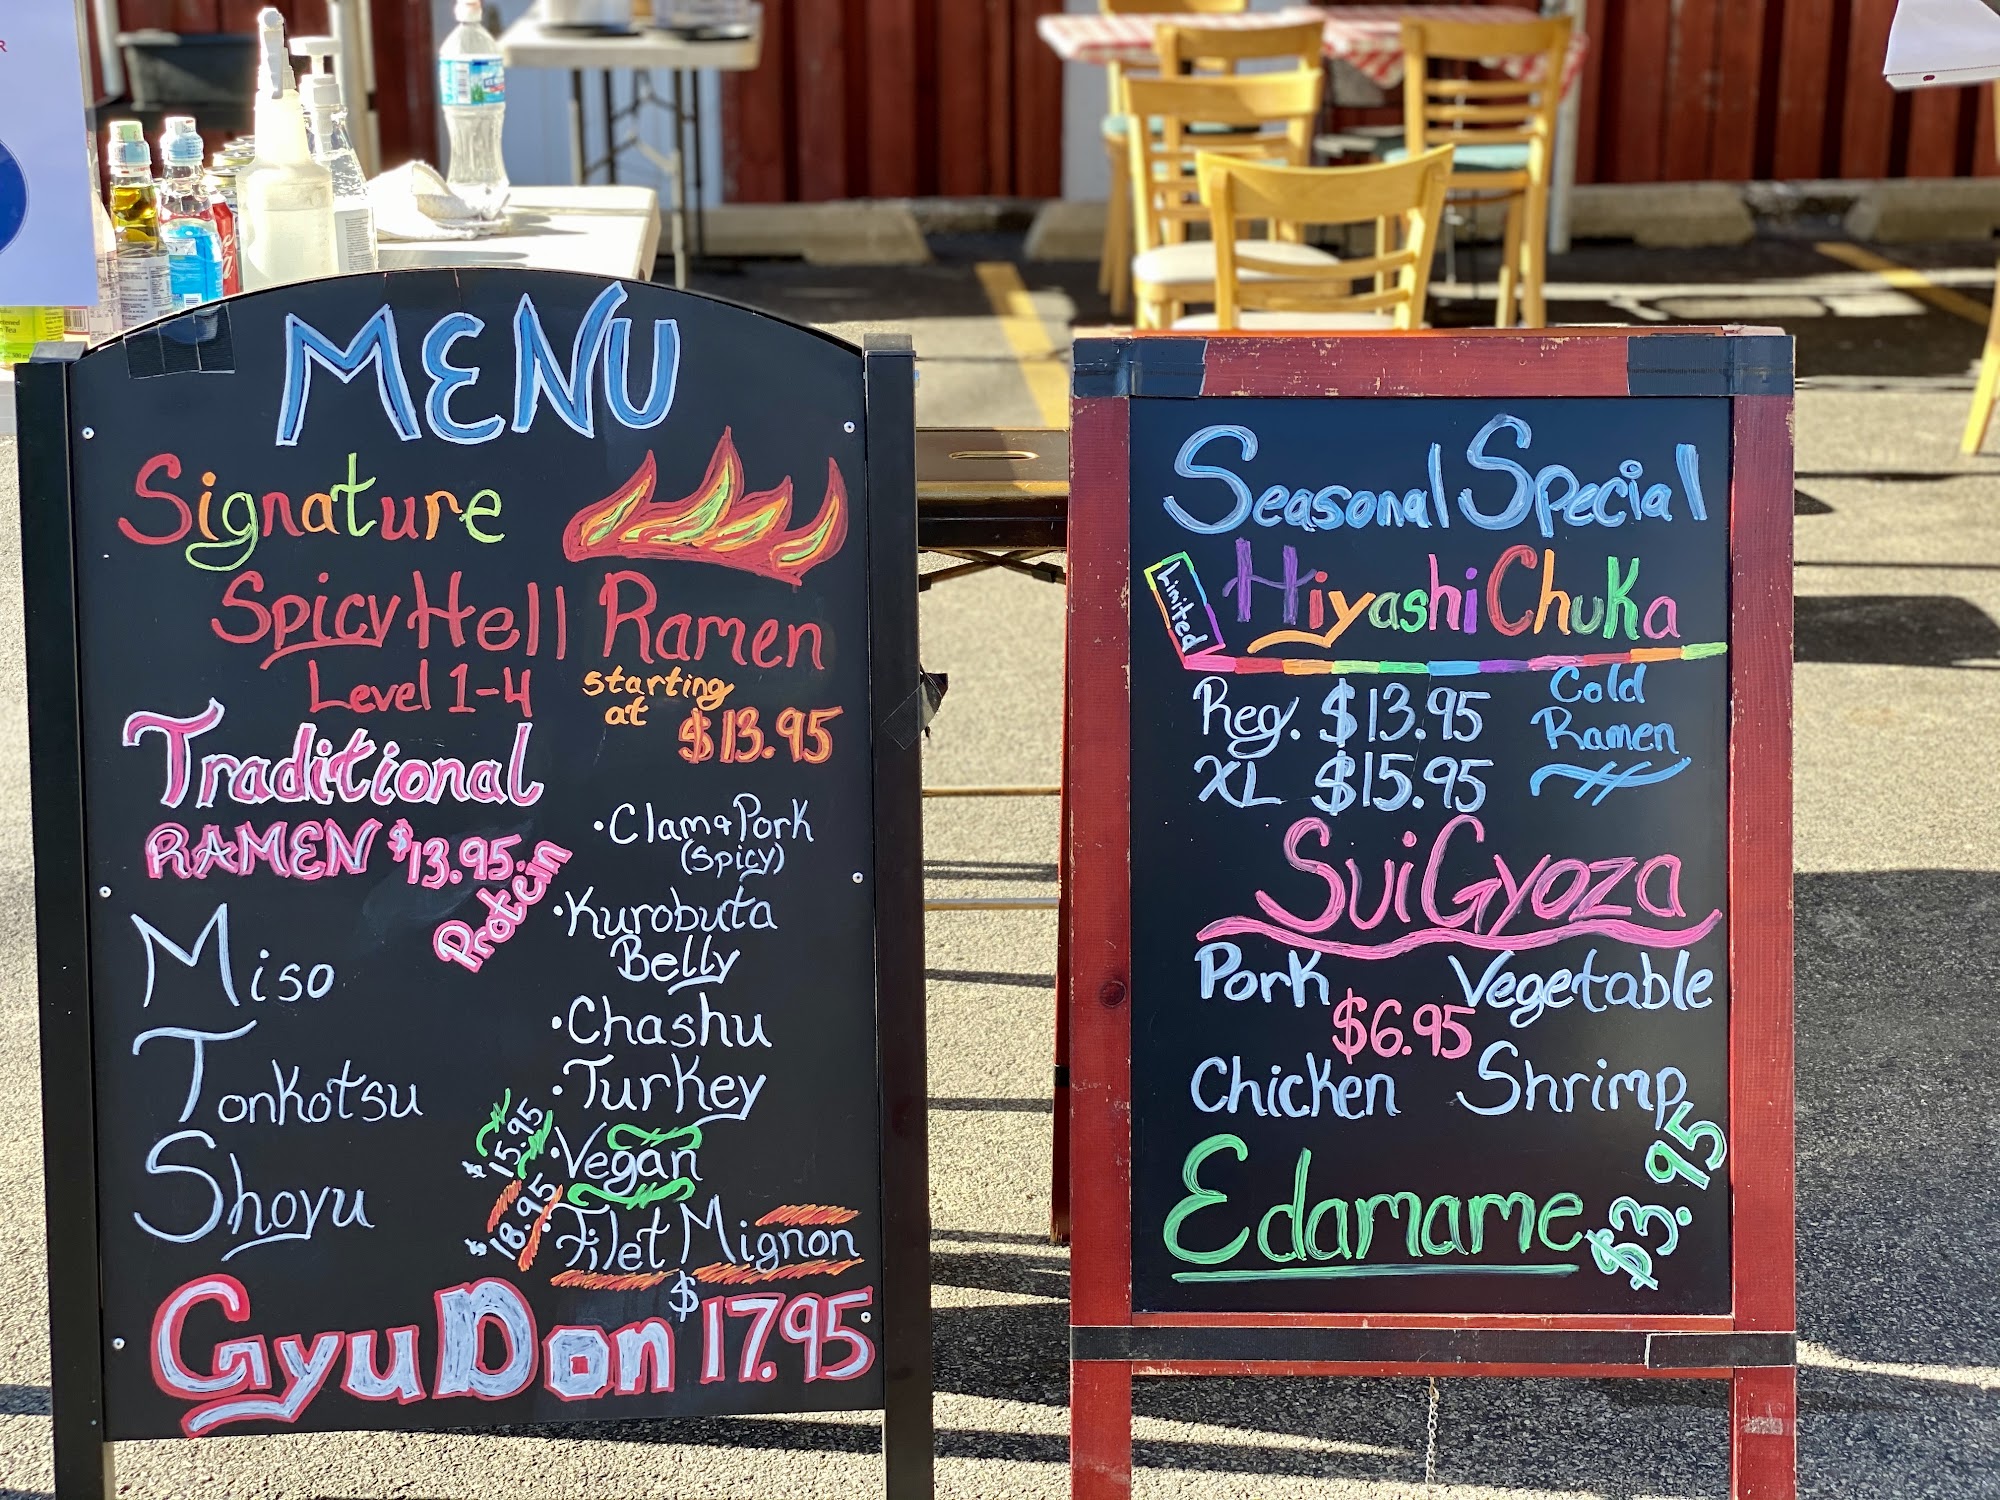 MENU
Signature
Spicy Hell Ramen
Level 1-4
starting
at $13.95
Traditional
RAMEN $13.95
Protein
Miso
Tonkotsu
Shoyu
•Clam & Pork
(Spicy)
•Kurobuta
Belly
•Chashu
•Turkey
$15.95 •Vegan
$18.95 •Filet Mignon
GyuDon $17.95
Seasonal Special
Limited
Hiyashi Chuka
Reg. $13.95
XL $15.95
Cold
Ramen
Sui Gyoza
Pork Vegetable
$6.95
Chicken Shrimp
Edamame $3.95